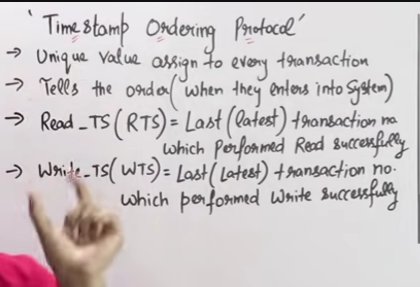 'Time Stamp Ordering Protocol'
→ Unique value assign to every transaction
→ Tells the order (when they enters into System)
→ Read_TS (RTS) = Last (latest) transaction no
which performed Read successfully
→ Write_TS (WTS) = Last (Latest) transaction no.
which performed Write successfully